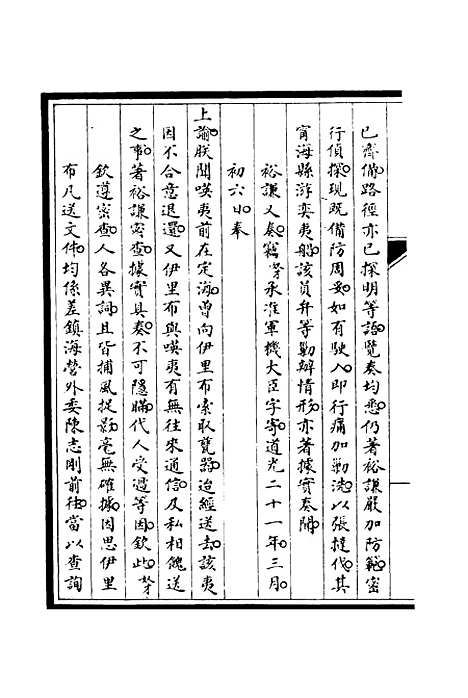 已齊備路徑亦已探明等語覽奏均悉仍著裕謙嚴加防範密
行偵探現既備防周妥如有駛入即行痛加勦洗以張撻伐其
甯海縣滸奕夷船該員弁等勦辦情形亦著據實奏聞
裕謙又奏竊孥承准軍機大臣字寄道光二十一年三月
初六日奉
上諭朕聞嘆夷前在定海曾向伊里布索取甎器迨經送去該夷
因不合意退還又伊里布與嘆夷有無往來通信及私相餽送
之事著裕謙密查據實具奏不可隱瞞代人受過等因欽此孥
欽遵密查人各異詞且皆捕風捉影毫無確據因思伊里
布凡送文件均係差鎮海營外委陳志剛前往當以查詢